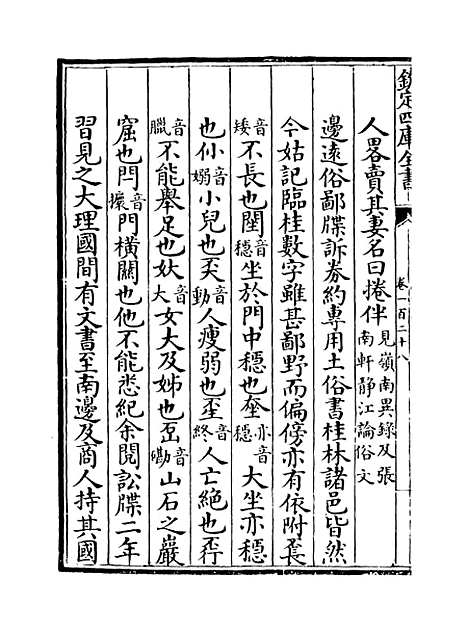 欽定四庫全書
卷一百二十八
人畧賣其妻名曰捲伴見嶺南異錄及張南軒靜江論俗文
邊遠俗鄙牒訴券約專用土俗書桂林諸邑皆然
今姑記臨桂數字雖甚鄙野而偏傍亦有依附
音矮不長也音穩坐於門中穩也亦音穩大坐亦穩
也仦音嫋小兒也奀音動人瘦弱也音終人亡絶也
音臘不能舉足也音大女大及姊也音磡山石之巖
窟也閂音攌門橫關也他不能悉紀余閱訟牒二年
習見之大理國間有文書至南邊及商人持其國